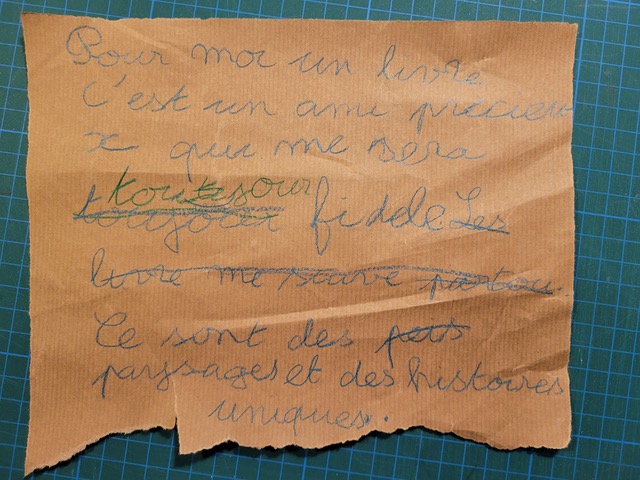 Pour moi un livre
C'est un ami précieu
x qui me sera
toutesour
toujouer fidele Les
livre me suive partou.
Ce sont des peits
paysages et des histoires
uniques.